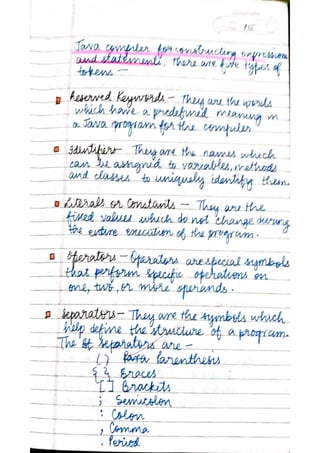 Java compiler for constructing expressions
and statements. There are five types of
tokens —
Reserved Keywords — They are the words
which have a predefined meaning in
a Java program for the compiler
Identifiers — They are the names which
can be assigned to variables, methods
and classes to uniquely identify them.
Literals or Constants — They are the
fixed values which do not change during
the entire execution of the program.
Operators — Operators are special symbols
that perform specific operations on
one, two, or more operands.
Separators — They are the symbols which
help define the structure of a program.
The separators are —
( ) Parenthesis
{ } Braces
[ ] Brackets
; Semicolon
: Colon
, Comma
. Period